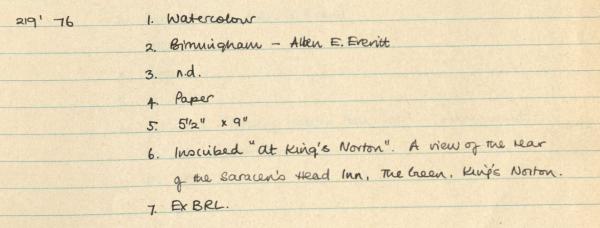 219' 76 1. Watercolour
2. Birmingham - Allen E. Everitt
3. n.d.
4. Paper
5. 5½" x 9"
6. Inscribed "at King's Norton". A view of the rear
of the Saracen's Head Inn, The Green, King's Norton.
7. Ex BRL.